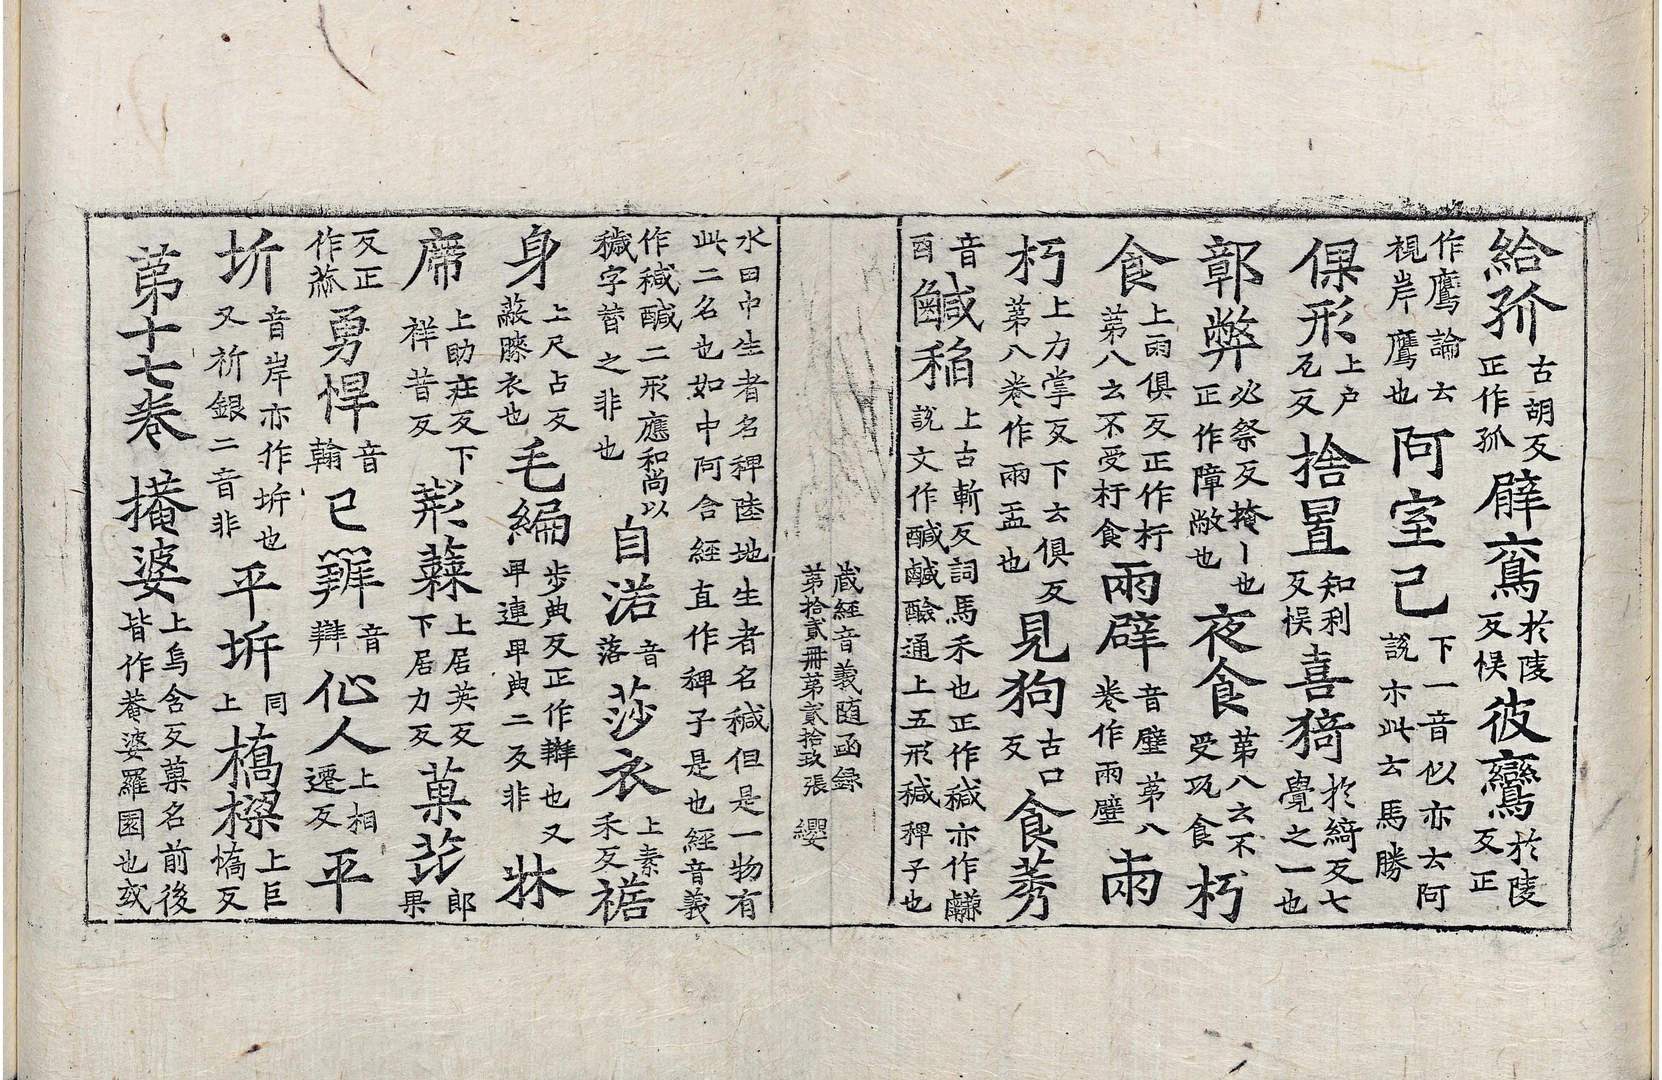 給孤古胡反正作孤臂鴦於陵反悞彼鸞於陵反正
作鷹論云視岸鷹也阿室己下一音似亦云阿說示此云馬勝
倮形上户瓦反捨置知利反悞喜猗於綺反七覺之一也
鄣弊必祭反掩丨也正作障敝也夜食第八云不受㺬食朽
食上雨俱反正作杅第八云不受杅食兩臂音壁第八卷作兩壁兩
朽上力掌反下云俱反第八卷作兩盂也見狗古口反食莠
音酉鹹稗上古斬反詞馬禾也正作穢亦作說文作鹹通上五形穢稗子也
藏經音義随函録
第拾貳冊第貳拾玖張 纓
水田中生者名稗陸地生者名穢但是一物有此二名也如中阿含經直作稗子是也經音義
作穢醎二形應和尚以穢字替之非也自渃音落莎衣上素禾反裾
身上尺占反蔽膝衣也毛編步典反正作辮也又卑連卑典二反非牀
席上助庄反下祥昔反荊蕀上居英反下居力反菓苾郎果
反正作蓏勇悍音翰已辦音辯仙人上相遷反平
圻音岸亦作坼也又祈銀二音非平坼同上橋樑上巨憍反
第十七卷掩婆上烏含反菓名前後皆作菴婆羅園也或